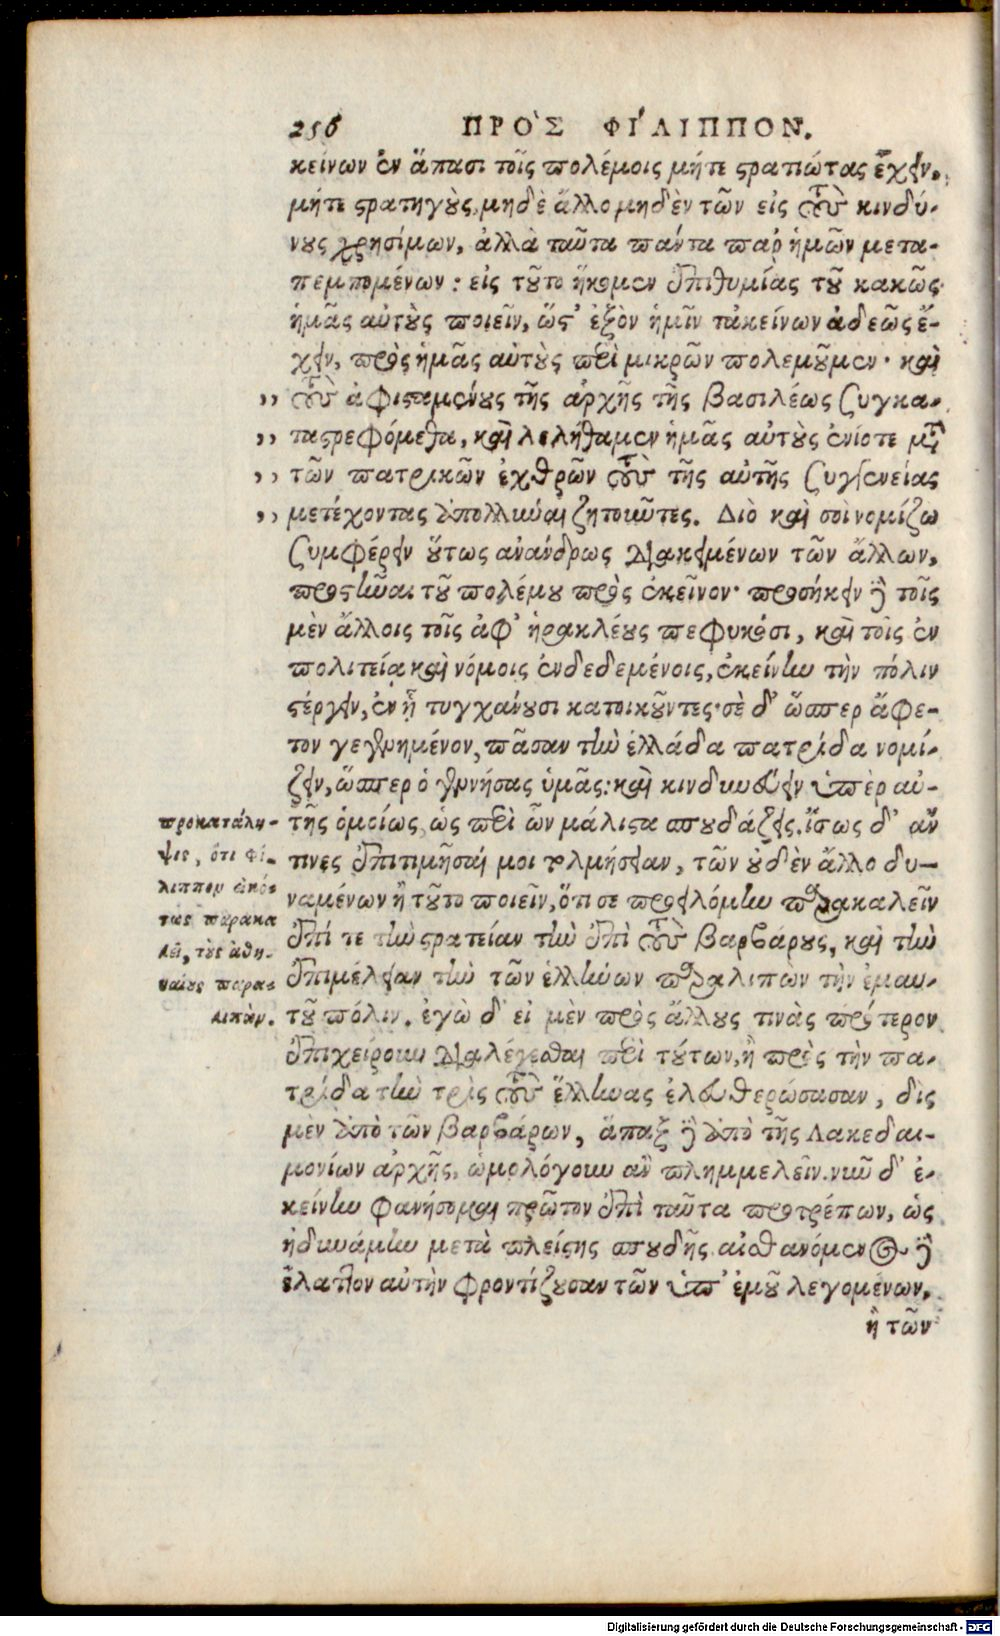 256 ΠΡΟ`Σ ΦΙ´ΛΙΠΠΟΝ.
κείνων ἐν ἅπασι τοῖς πολέμοις μήτε στρατιώτας ἔχειν,
μήτε στρατηγοὺς, μηδὲ ἄλλο μηδὲν τῶν εἰς τοὺς κινδύ-
νους χρησίμων, ἀλλὰ ταῦτα πάντα παρ' ἡμῶν μετα-
πεμπομένων: εἰς τοῦτο ἥκομεν ἐπιθυμίας τοῦ κακῶς
ἡμᾶς αὐτοὺς ποιεῖν, ὥστ' ἐξὸν ἡμῖν τἀκείνων ἀδεῶς ἔ-
χειν, πρὸς ἡμᾶς αὐτοὺς περὶ μικρῶν πολεμοῦμεν· καὶ
,, τοὺς ἀφισταμένους τῆς ἀρχῆς τῆς βασιλέως συγκα-
,, ταστρεφόμεθα, καὶ λελήθαμεν ἡμᾶς αὐτοὺς ἐνίοτε μετὰ
,, τῶν πατρικῶν ἐχθρῶν τοὺς τῆς αὐτῆς συγγενείας
,, μετέχοντας ἀπολλύναι ζητοῦντες. Διὸ καὶ σοὶ νομίζω
συμφέρειν οὕτως ἀνάνδρως διακειμένων τῶν ἄλλων,
προστῆναι τοῦ πολέμου πρὸς ἐκεῖνον· προσήκειν δὲ τοῖς
μὲν ἄλλοις τοῖς ἀφ' ἡρακλέους πεφυκόσι, καὶ τοῖς ἐν
πολιτείᾳ καὶ νόμοις ἐνδεδεμένοις, ἐκείνην τὴν πόλιν
στέργειν, ἐν ᾗ τυγχάνουσι κατοικοῦντες· σὲ δ' ὥσπερ ἄφε-
τον γεγενημένον, πᾶσαν τὴν ἑλλάδα πατρίδα νομί-
ζειν, ὥσπερ ὁ γεννήσας ὑμᾶς: καὶ κινδυνεύειν ὑπὲρ αὐ-
τῆς ὁμοίως, ὡς περὶ ὧν μάλιστα σπουδάζεις. ἴσως δ' ἄν
τινες ἐπιτιμῆσαί μοι τολμήσειαν, τῶν οὐδὲν ἄλλο δυ-
ναμένων ἢ τοῦτο ποιεῖν, ὅτι σε προειλόμην παρακαλεῖν
ἐπί τε τὴν στρατείαν τὴν ἐπὶ τοὺς βαρβάρους, καὶ τὴν
ἐπιμέλειαν τὴν τῶν ἑλλήνων παραλιπὼν τὴν ἐμαυ-
τοῦ πόλιν. ἐγὼ δ' εἰ μὲν πρὸς ἄλλους τινὰς πρότερον
ἐπιχείρουν διαλέγεσθαι περὶ τούτων, ἢ πρὸς τὴν πα-
τρίδα τὴν τρὶς τοὺς ἕλληνας ἐλευθερώσασαν, δὶς
μὲν ἀπὸ τῶν βαρβάρων, ἅπαξ δὲ ἀπὸ τῆς Λακεδαι-
μονίων ἀρχῆς, ὡμολόγουν ἂν πλημμελεῖν. νῦν δ' ἐ-
κείνην φανήσομαι πρῶτον ἐπὶ ταῦτα προτρέπων, ὡς
ἠδυνάμην μετὰ πλείστης σπουδῆς. αἰσθανόμενος δὲ
ἔλαττον αὐτὴν φροντίζουσαν τῶν ὑπ' ἐμοῦ λεγομένων,
ἢ τῶν
προκατάλη-
ψις, ὅτι φί-
λιππον εἰκό-
τως παρακα
λεῖ, τοὺς ἀθη-
ναίους παρα-
λιπὼν.
Digitalisierung gefördert durch die Deutsche Forschungsgemeinschaft - DFG